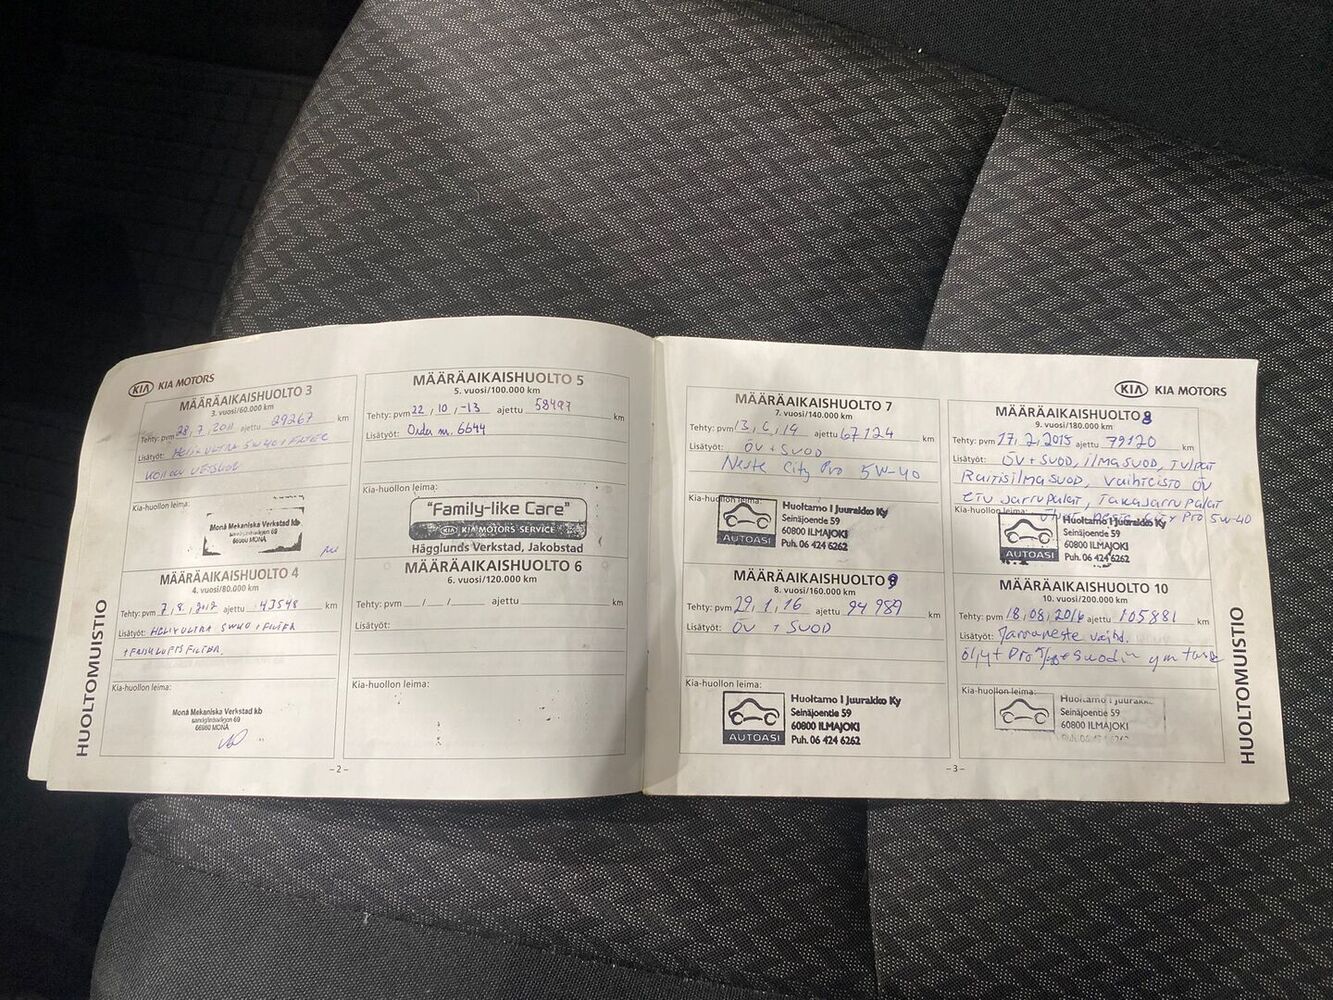 KIA KIA MOTORS
MÄÄRÄAIKAISHUOLTO 3
3. vuosi/60.000 km
Tehty: pvm 28, 7, 2011 ajettu 29267 km
Lisätyöt: HELIX ULTRA 5W40 + FILTER
Kia-huollon leima:
Monå Mekaniska Verkstad kb
66960 MONÅ
MÄÄRÄAIKAISHUOLTO 4
4. vuosi/80.000 km
Tehty: pvm 7, 8, 2012 ajettu 43548 km
Lisätyöt: HELIX ULTRA 5W40 + FILTER
+ FRISKLUFTSFILTER.
Kia-huollon leima:
Monå Mekaniska Verkstad kb
66960 MONÅ
HUOLTOMUISTIO
MÄÄRÄAIKAISHUOLTO 5
5. vuosi/100.000 km
Tehty: pvm 22, 10, -13 ajettu 58497 km
Lisätyöt: Order nr. 6644
Kia-huollon leima:
"Family-like Care"
KIA KIA MOTORS SERVICE
Hägglunds Verkstad, Jakobstad
MÄÄRÄAIKAISHUOLTO 6
6. vuosi/120.000 km
Tehty: pvm / / ajettu km
Lisätyöt:
Kia-huollon leima:
-2-
KIA KIA MOTORS
MÄÄRÄAIKAISHUOLTO 7
7. vuosi/140.000 km
Tehty: pvm 13, 6, 14 ajettu 67124 km
Lisätyöt: ÖV + SUOD
Neste City Pro 5W-40
Kia-huollon leima:
AUTOASI
Huoltamo I Juurakko Ky
Seinäjoentie 59
60800 ILMAJOKI
Puh. 06 424 6262
MÄÄRÄAIKAISHUOLTO 9
8. vuosi/160.000 km
Tehty: pvm 29, 1, 16 ajettu 94989 km
Lisätyöt: ÖV + SUOD
Kia-huollon leima:
AUTOASI
Huoltamo I Juurakko Ky
Seinäjoentie 59
60800 ILMAJOKI
Puh. 06 424 6262
MÄÄRÄAIKAISHUOLTO 8
9. vuosi/180.000 km
Tehty: pvm 17, 2, 2015 ajettu 79120 km
Lisätyöt: ÖV + SUOD, ilmasuod, TULPAT
Raitisilmasuod, vaihteisto ÖV
etu jarrupalat, Takajarrupalat
Pro 5W-40
Kia-huollon leima:
AUTOASI
Huoltamo I Juurakko Ky
Seinäjoentie 59
60800 ILMAJOKI
Puh. 06 424 6262
MÄÄRÄAIKAISHUOLTO 10
10. vuosi/200.000 km
Tehty: pvm 18, 08, 2016 ajettu 105881 km
Lisätyöt: Jarruneste vaihd.
öljyt Pro
Kia-huollon leima:
Huoltamo I Juurakko
Seinäjoentie 59
60800 ILMAJOKI
-3-
HUOLTOMUISTIO